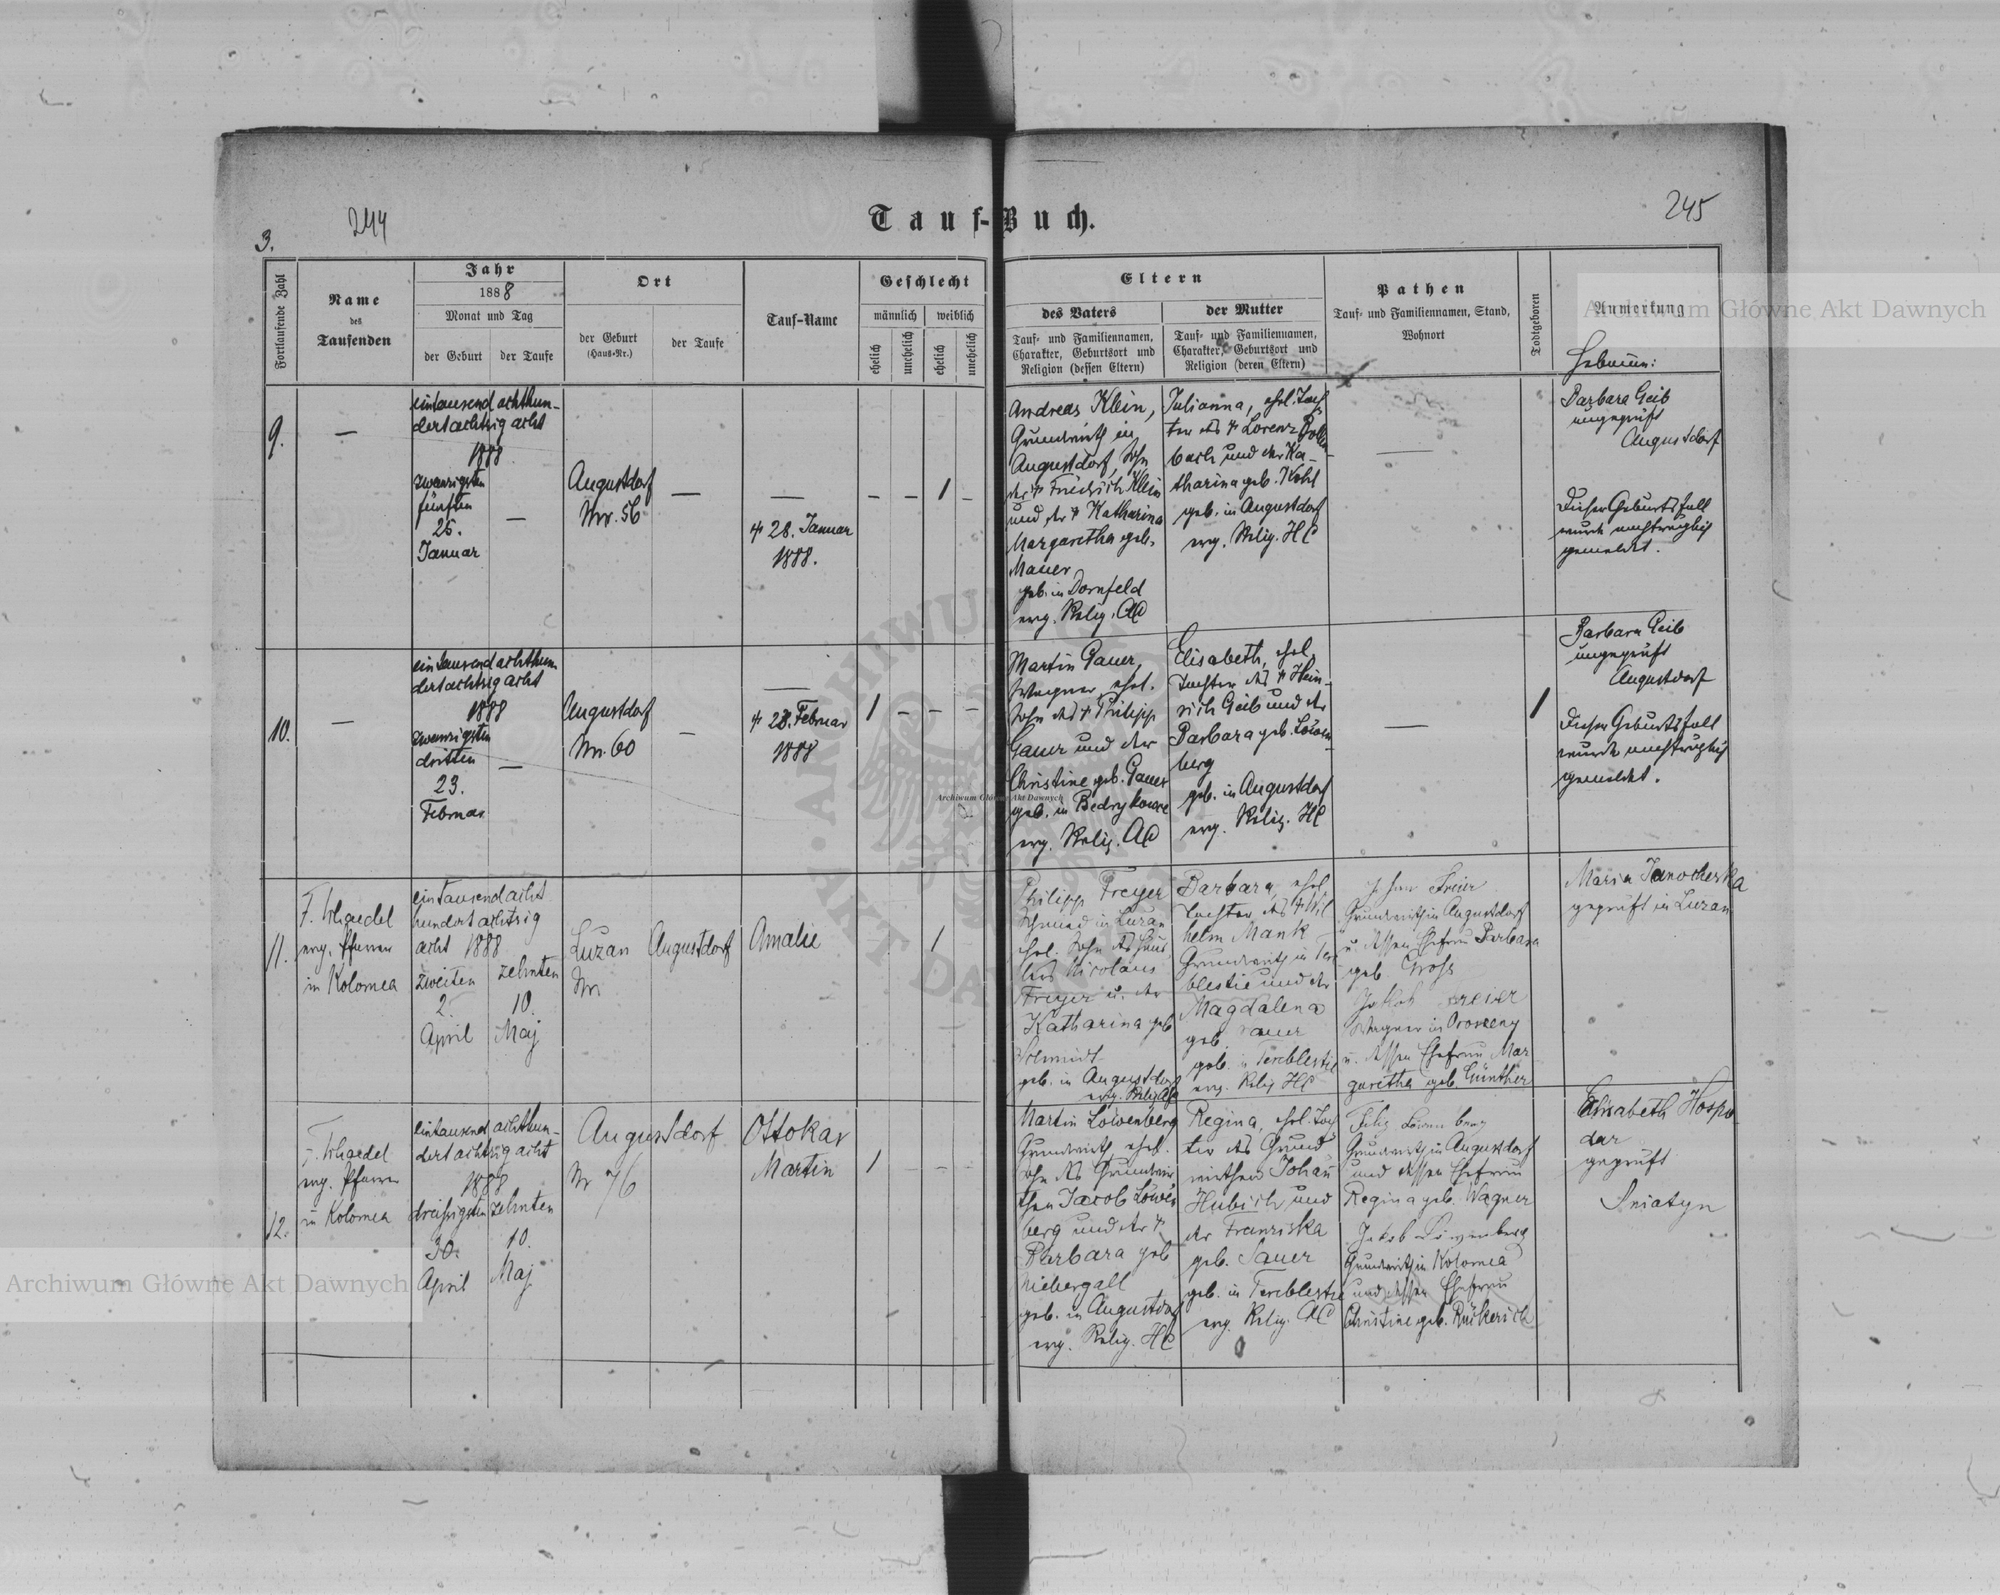 244
245
3.
Tauf-Buch.
Fortlaufende Zahl
Name
des
Taufenden
Jahr
1888
Monat und Tag
der Geburt
der Taufe
Ort
der Geburt
(Haus-Nr.)
der Taufe
Tauf-Name
Geschlecht
männlich
weiblich
ehelich
unehelich
ehelich
unehelich
Eltern
des Vaters
Tauf- und Familiennamen,
Charakter, Geburtsort und
Religion (dessen Eltern)
der Mutter
Tauf- und Familiennamen,
Charakter, Geburtsort und
Religion (deren Eltern)
Pathen
Tauf- und Familiennamen, Stand,
Wohnort
Todtgeboren
Anmerkung
Hebamme:
9.
—
eintausend achthun-
dertachtzig acht
1888
zwanzigsten
fünften
25.
Januar
—
Augustdorf
Nro. 56
—
—
+ 28. Januar
1888.
– – 1 –
Andreas Klein,
Grundwirth in
Augustdorf, Sohn
des + Friedrich Klein
und der + Katharina
Margaretha geb.
Mauer
geb. in Dornfeld
evg. Relig. AC
Julianna, ehel. Toch-
ter des + Lorenz
bach und der Ka-
tharina geb. Kohl
geb. in Augustdorf
evg. Relig. HC
—
Barbara Geib
ungeprüft
Augustdorf
Dieser Geburtsfall
wurde nachträglich
gemeldet.
10.
—
eintausend achthun-
dertachtzig acht
1888
zwanzigsten
dritten
23.
Februar
—
Augustdorf
Nro. 60
—
—
+ 28. Februar
1888
1 – – –
Martin Gauer,
Wagner, ehel.
Sohn des + Philipp
Gauer und der
Christine geb. Gauer
geb. in Bedrykowce
evg. Relig. AC
Elisabeth, ehel.
Tochter des + Hein-
rich Geib und der
Barbara geb. Löwen-
berg
geb. in Augustdorf
evg. Relig. HC
—
1
Barbara Geib
ungeprüft
Augustdorf
Dieser Geburtsfall
wurde nachträglich
gemeldet.
11.
evg. Pfarrer
in Kolomea
eintausend acht
hundert achtzig
acht 1888
zweiten
2.
April
zehnten
10.
Maj
Luzan
Nro
Augustdorf
Amalie
– – 1 –
Philipp Freyer
Schmied in Luzan
ehel. Sohn des
Nicolaus
Freyer u. der
Katharina geb
Schmidt
geb. in Augustdorf
evg. Relig. AC
Barbara, ehel.
Tochter des + Wil
helm Mank
Grundwirth in Ter
blestie und der
Magdalena
geb. Sauer
geb. in Tereblestie
evg. Relig HC
Freier
Grundwirth in Augustdorf
u. dessen Ehefrau Barbara
geb. Gross
Jakob Freier
Wagner in
u. dessen Ehefrau Mar
garetha geb Günther
Maria
geprüft in Luzan
12.
evg. Pfarrer
in Kolomea
eintausend achthun-
dertachtzig acht
1888
dreissigsten
30.
April
zehnten
10.
Maj
Augustdorf
Nr 76
Ottokar
Martin
1 – – –
Martin Löwenberg
Grundwirth, ehel.
Sohn des Grundwir
then Jacob Löwen
berg und der +
Barbara geb
Niebergall
geb. in Augustdorf
evg. Relig. HC
Regina, ehel. Toch
ter des Grund
wirthen Johan
Hubich und
der Franziska
geb. Sauer
geb. in Tereblestie
evg. Relig. AC
Löwenberg
Grundwirth in Augustdorf
und dessen Ehefrau
Regina geb. Wagner
Jakob Löwenberg
Grundwirth in Kolomea
und dessen Ehefrau
Christine geb. Rückerich
Elisabeth Hospo
dar
geprüft
Sniatyn
Archiwum Główne Akt Dawnych
Archiwum Główne Akt Dawnych
Archiwum Główne Akt Dawnych